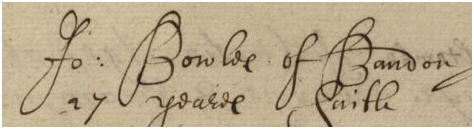 Jo: Bowles of Bandon
27 yeares saith